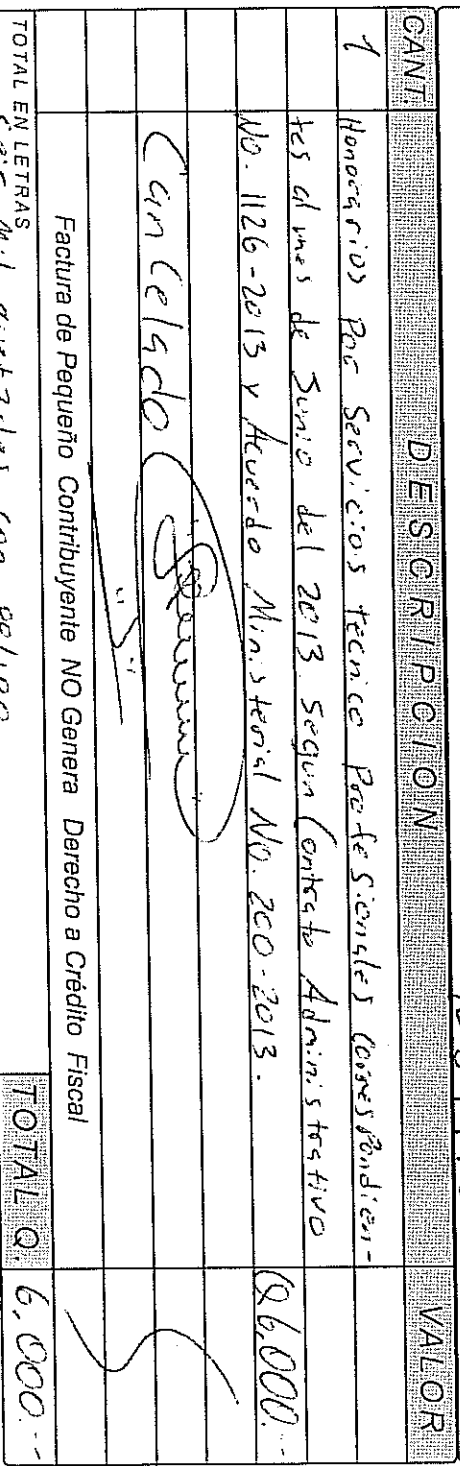 CANT. DESCRIPCION VALOR
1 Honorarios Por Servicios técnico Profesionales Correspondien-
tes al mes de Junio del 2013. Según Contrato Administrativo
No. 1126-2013 y Acuerdo Ministerial No. 200-2013. Q6,000.--
Cancelado
Factura de Pequeño Contribuyente NO Genera Derecho a Crédito Fiscal
TOTAL EN LETRAS TOTAL Q. 6,000.--
Seis Mil quetzales con 00/100